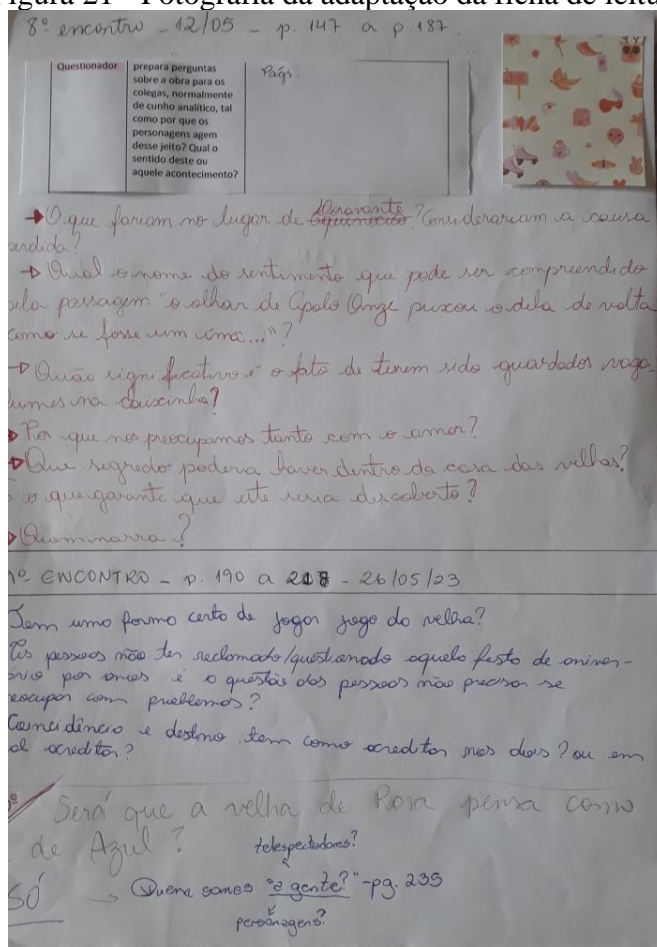 Figura 21 - Fotografia da adaptação da ficha de leitu
8º encontro - 12/05 - p. 147 a p. 187.
Questionador
prepara perguntas
sobre a obra para os
colegas, normalmente
de cunho analítico, tal
como por que os
personagens agem
desse jeito? Qual o
sentido deste ou
aquele acontecimento?
Pags.
→ O que fariam no lugar de Doravante? Considerariam a causa
erdida?
→ Qual o nome do sentimento que pode ser compreendido
ela passagem "o olhar de Apolo Onze puxou o dela de volta
como se fosse um ímã..."?
→ Quão significativo é o fato de terem sido guardados vaga-
lumes na caixinha?
Por que nos preocupamos tanto com o amor?
Que segredo poderia haver dentro da casa das velhas?
o que garante que este seria descoberto?
Quem narra?
º ENCONTRO - p. 190 a 218 - 26/05/23
Tem uma forma certa de jogar jogo da velha?
As pessoas não ter reclamado/questionado aquela festa de aniver-
ário por anos é a questão das pessoas não precisar se
reocupar com problemas?
Coincidência e destino, tem como acreditar nos dois? ou em
al acreditar?
Será que a velha de Rosa pensa como
de Azul?
telespectadores?
SÓ → Quem somos "a gente?" - pg. 235
personagens?